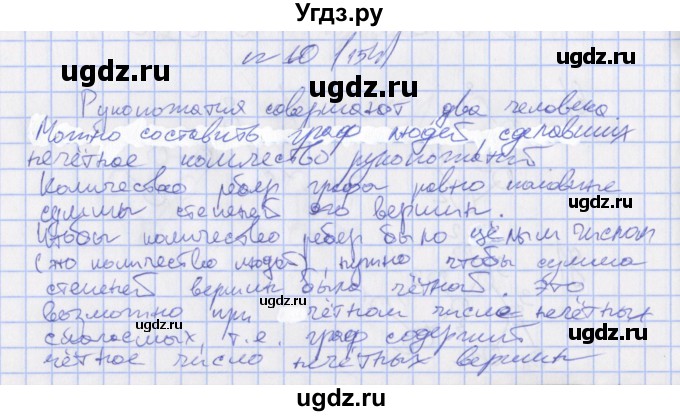 Угдз.ру
№ 10 (154)
Рукопожатия совершают два человека.
Можно составить граф людей сделавших
нечётное количество рукопожатий
Количество ребер графа равно половине
суммы степеней его вершин.
Чтобы количество ребер было целым числом
(это количество людей), нужно чтобы сумма
степеней вершин была чётной. Это
возможно при чётном числе нечётных
слагаемых, т.е. граф содержит
чётное число нечётных вершин
ugdz.ru ugdz.ru ugdz.ru
ugdz.ru ugdz.ru
ugdz.ru ugdz.ru ugdz.ru
ugdz.ru ugdz.ru
ugdz.ru ugdz.ru ugdz.ru